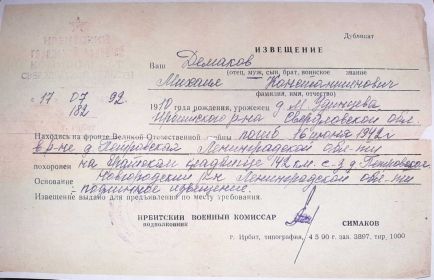 Дубликат
ИЗВЕЩЕНИЕ
Ваш Демаков
(отец, муж, сын, брат, воинское звание
Михаил Константинович
фамилия, имя, отчество)
17 07 92
182
1910 рождения, уроженец д. М.
р-на Свердловской обл.
Находясь на фронте Великой Отечественной войны погиб 16 июня 1942 г
в р-не д. Петровская Ленинградской обл-ти
похоронен на братском кладбище 142 км. с-з д. Петровская
Основание Новгородский р-н Ленинградской обл-ти
- подлинное извещение.
Извещение выдано для предъявления по месту требования.
ИРБИТСКИЙ ВОЕННЫЙ КОМИССАР
подполковник
СИМАКОВ
г. Ирбит, типография, 4 5 90 г. зак. 3897, тир. 1000